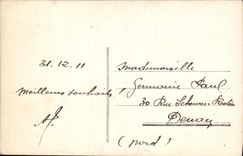 31.12.11
Meilleurs souhaits
Mademoiselle
Germaine Paul
30 Rue
Denain
(Nord)